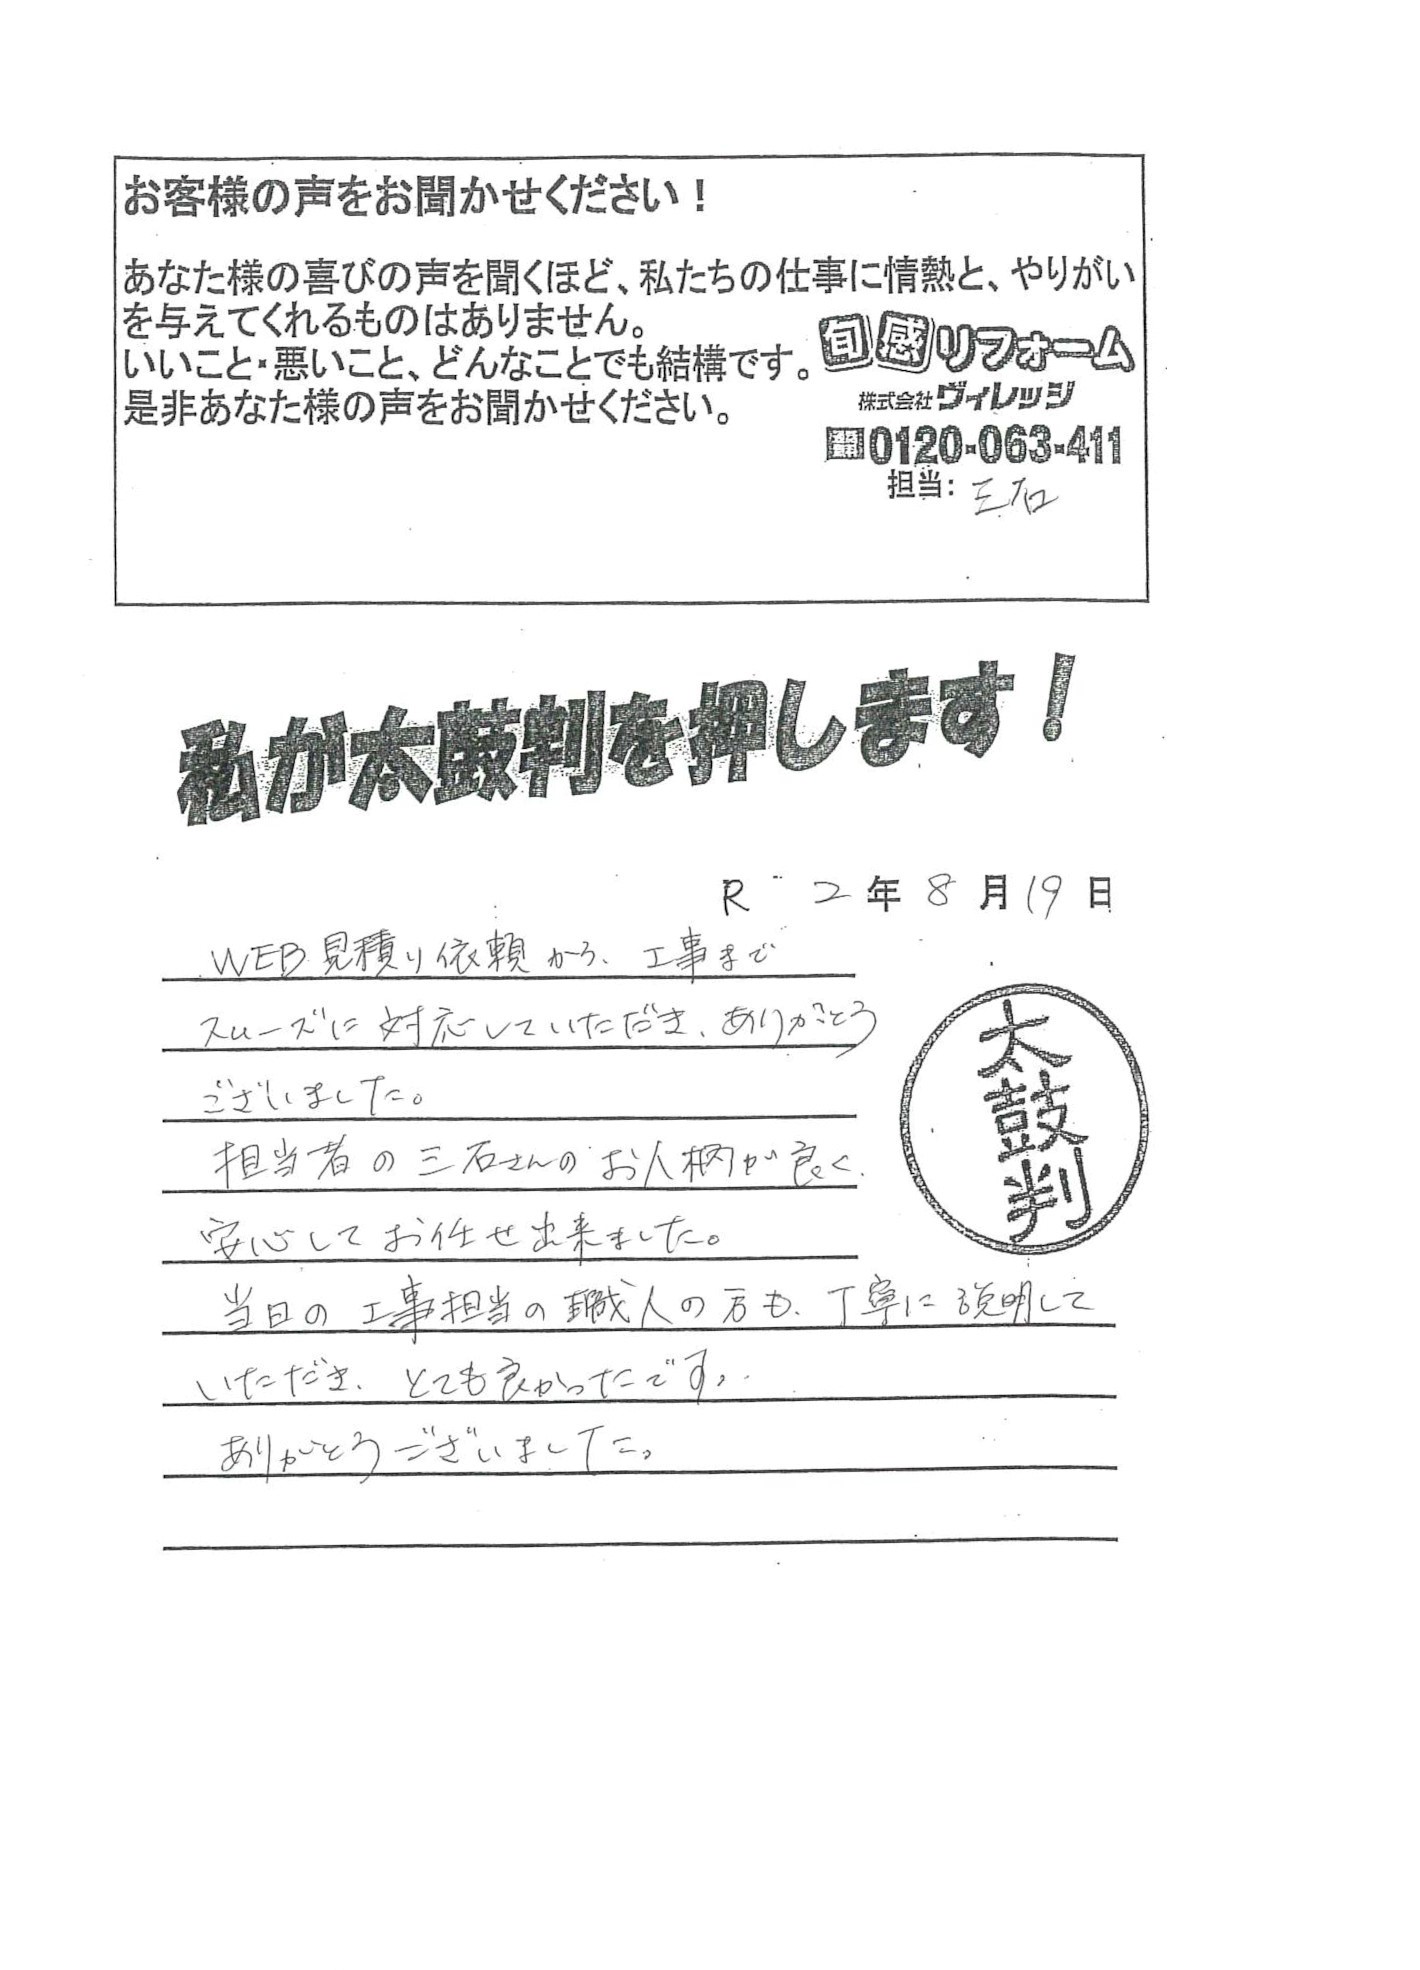 お客様の声をお聞かせください！
あなた様の喜びの声を聞くほど、私たちの仕事に情熱と、やりがい
を与えてくれるものはありません。
いいこと・悪いこと、どんなことでも結構です。
是非あなた様の声をお聞かせください。
旬感リフォーム
株式会社ヴィレッジ
0120-063-411
担当：三石
私が太鼓判を押します！
R 2年8月19日
WEB見積り依頼から、工事まで
スムーズに対応していただき、ありがとう
ございました。
担当者の三石さんのお人柄が良く、
安心してお任せ出来ました。
太鼓判
当日の工事担当の職人の方も、丁寧に説明して
いただき、とても良かったです。
ありがとうございました。